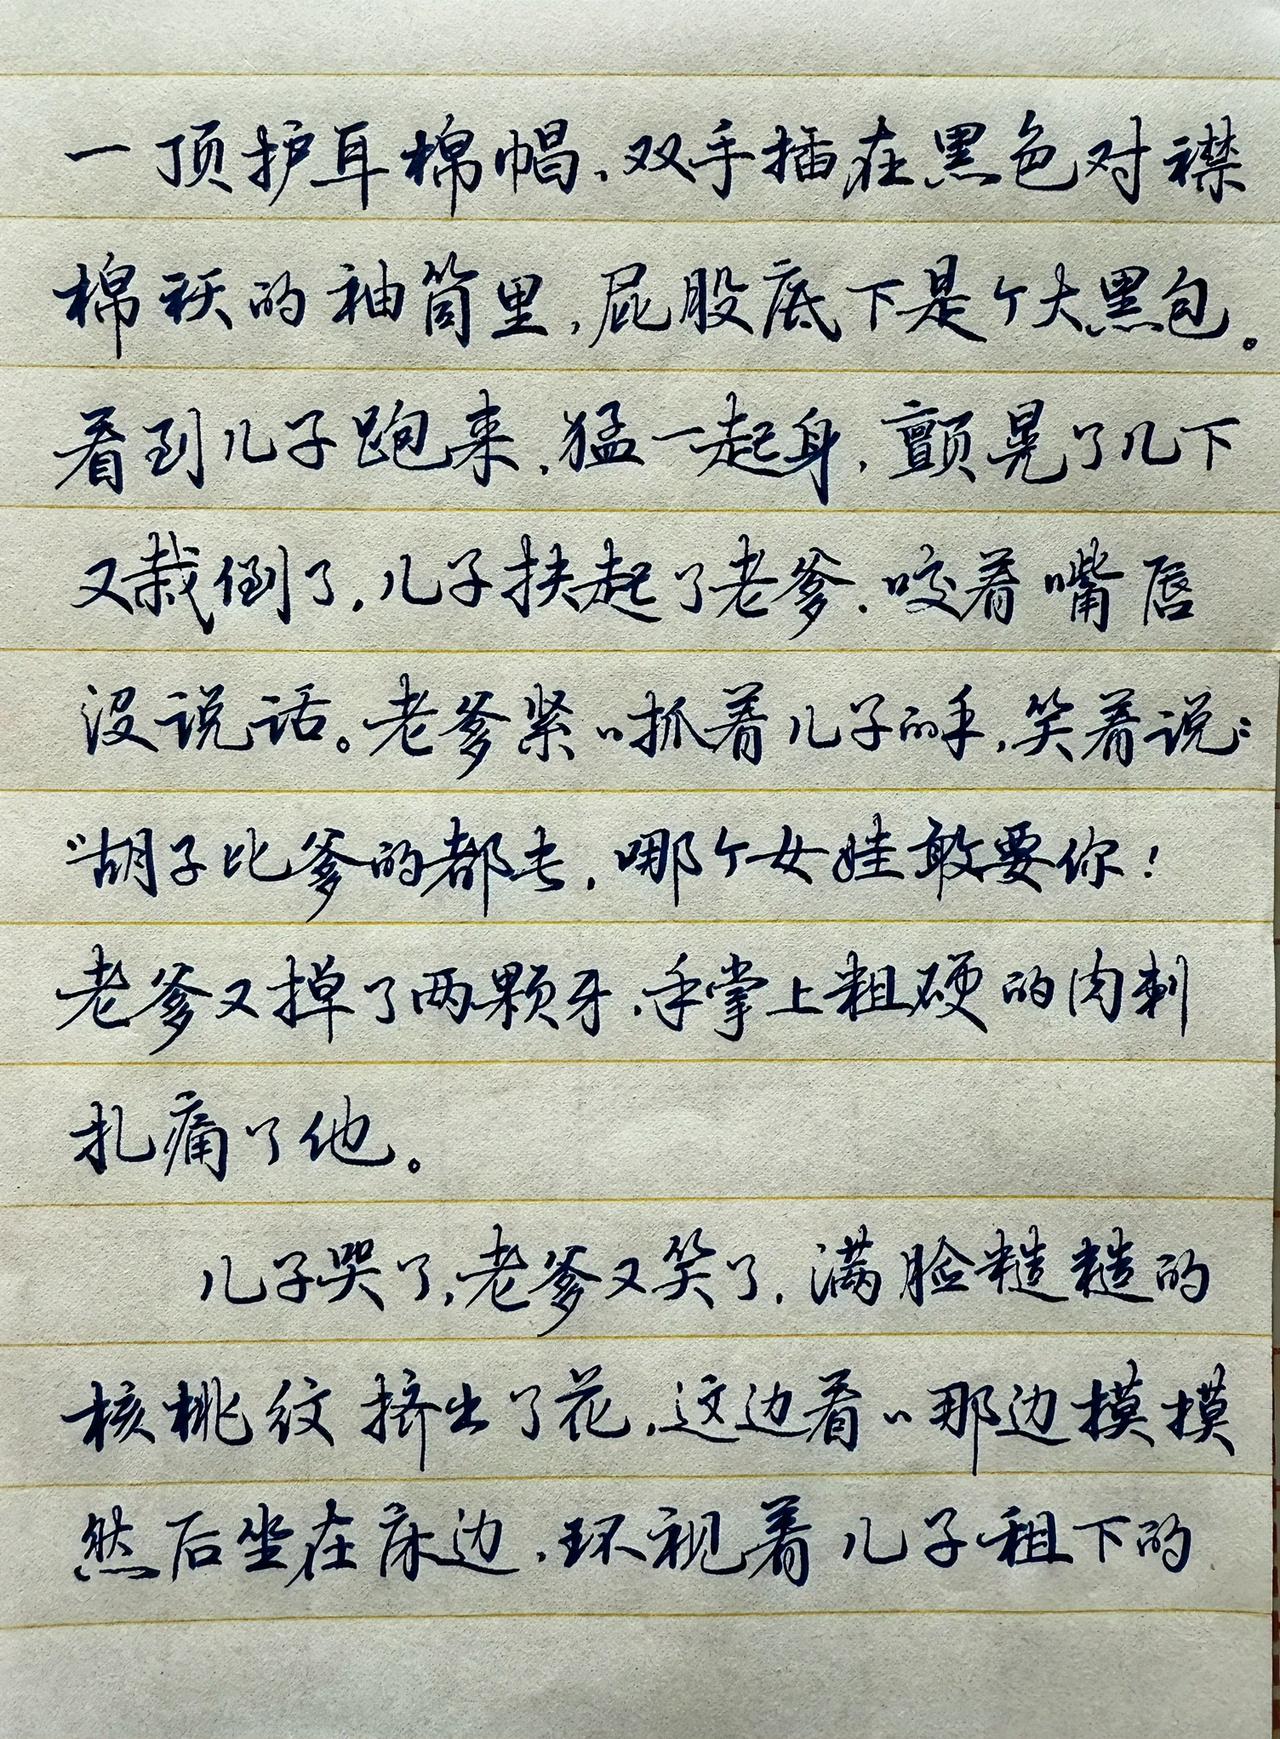 一顶护耳棉帽、双手插在黑色对襟
棉袄的袖筒里,屁股底下是个大黑包。
看到儿子跑来,猛一起身,颤晃了几下
又栽倒了,儿子扶起了老爹,咬着嘴唇
没说话。老爹紧〃抓着儿子的手,笑着说:
“胡子比爹的都长,哪个女娃敢要你!
老爹又掉了两颗牙,手掌上粗硬的肉刺
扎痛了他。
儿子哭了,老爹又笑了,满脸糙糙的
核桃纹挤出了花,这边看〃那边摸摸
然后坐在床边,环视着儿子租下的